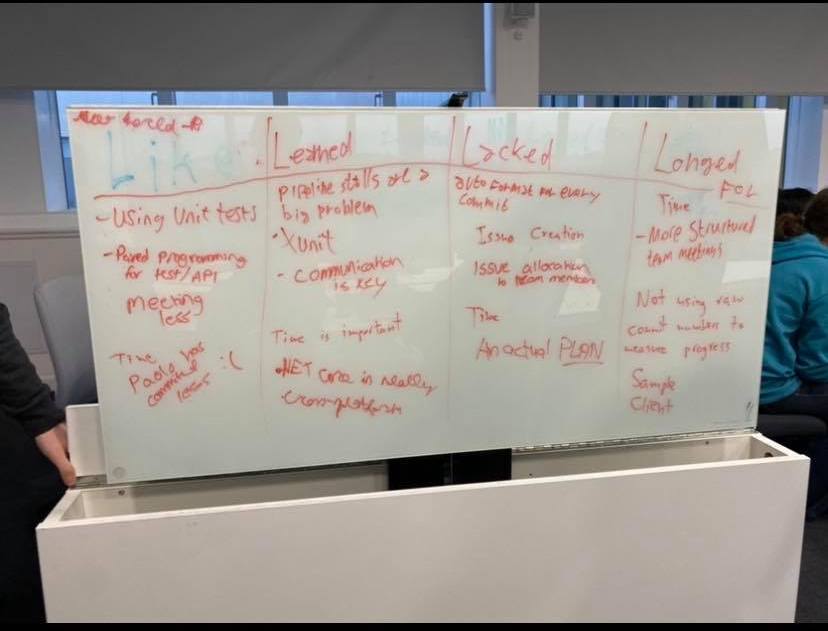 Like
- Using Unit tests
- Paired Programming
for test/API
meeting
less
Time
Paolo has :(
committed
Learned
Pipeline stalls are a
big problem
- Xunit
- communication
is key
Time is important
.NET core in really
crossplatform
Lacked
auto format on every
commit
Issue Creation
Issue allocation
to team members
Time
An actual PLAN
Longed
FOR
Time
- More Structured
team meetings
Not using raw
commit numbers to
measure progress
Sample
Client